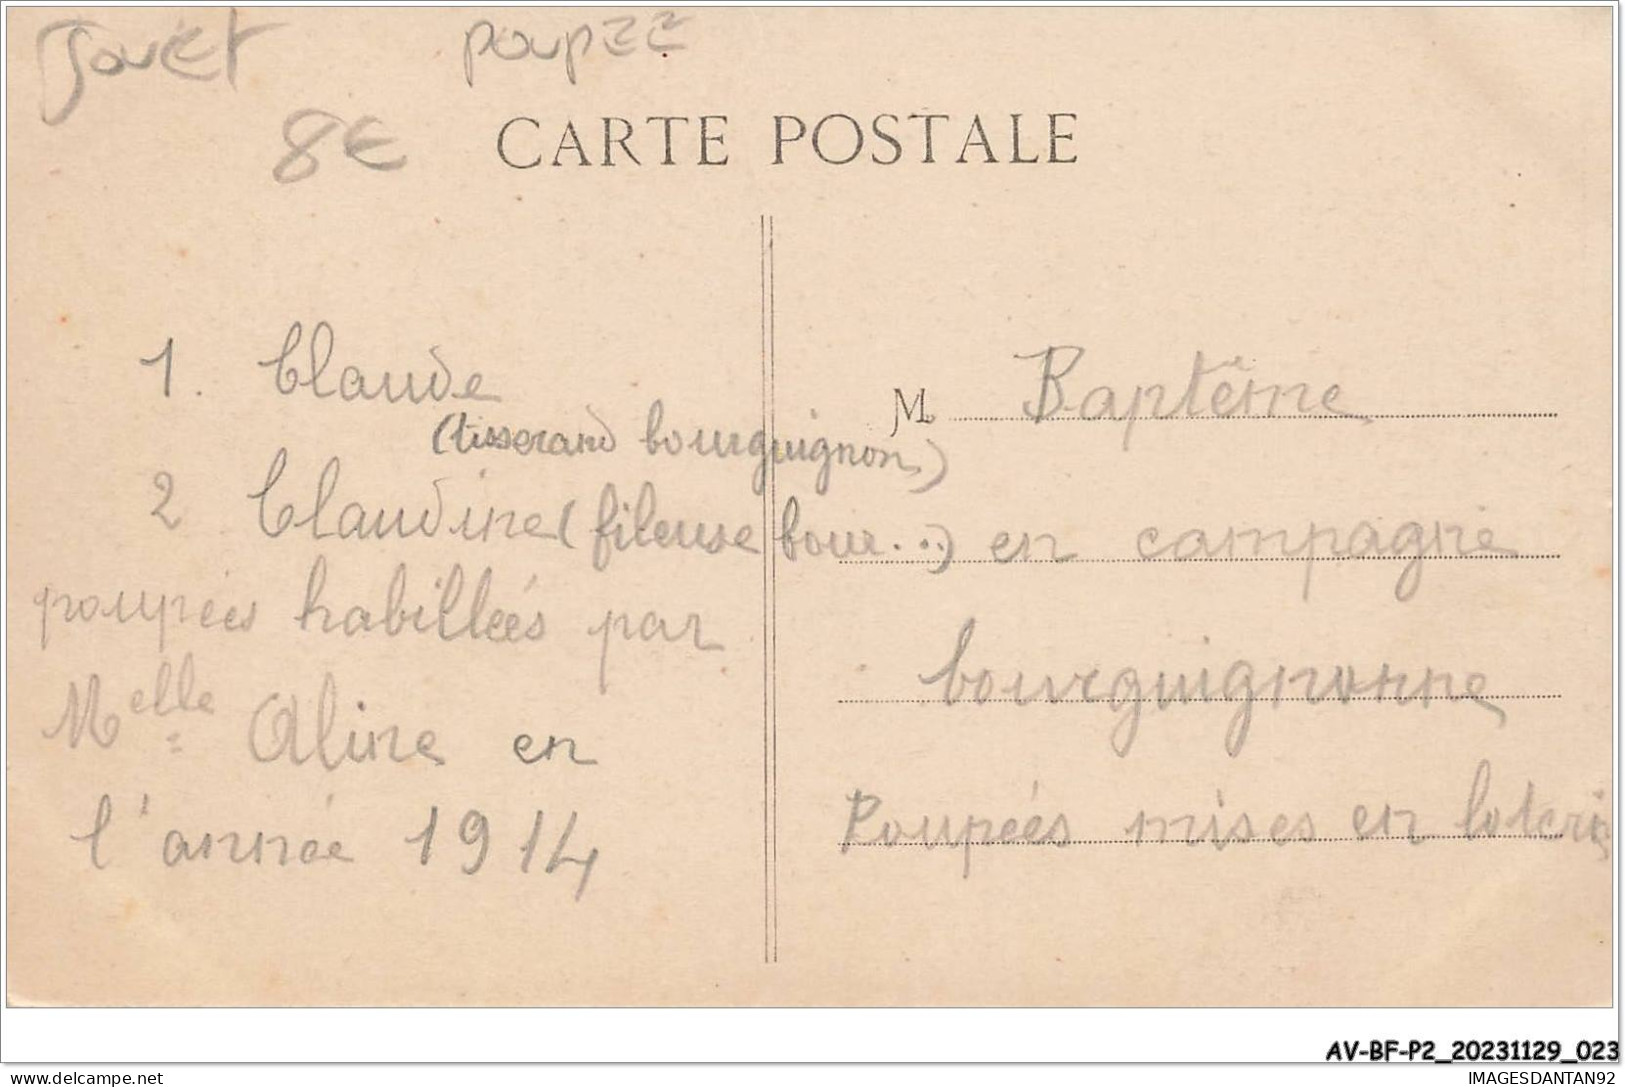 Jouet poupée
8€
CARTE POSTALE
1. Claude
(tisserand bourguignon)
2 Claudine (fileuse bour...)
poupées habillées par
Melle Aline en
l'année 1914
M. Baptême
en campagne
bourguignonne
Poupées mises en loterie
AV-BF-P2_20231129_023
delcampe.net
IMAGESDANTAN92